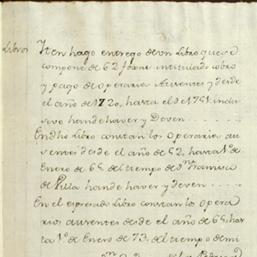 Libros Iten hago entrego de un Libro que se
compone de 62 foxas intitulado cobro
y pago de operarios Auzentes y desde
el año de 1720, hasta el de 1751 inclu
sivo han de haver y Deven
En dho Libro constan los Operarios au
sentes desde el año de 52, hasta 1º de
Enero de 65 del tiempo de Dn Francisco
de Villa han de haver y deven
En el expresado Libro constan los opera
rios ausentes desde el año de 65 has
ta 1º de Enero de 73. del tiempo de mi